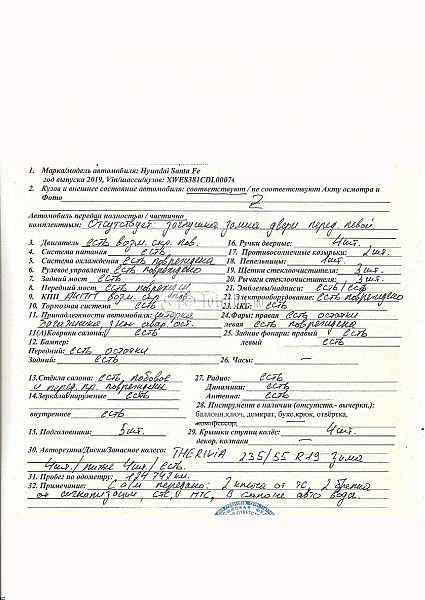 1. Марка/модель автомобиля: Hyundai Santa Fe
год выпуска 2019, Vin/шасси/кузов: XWES381CDL00074
2. Кузов и внешнее состояние автомобиля: соответствуют / не соответствуют Акту осмотра и
Фото 2
Автомобиль передан полностью / частично
комплектным: Отсутствует заглушка замка двери перед левой
3. Двигатель есть возм. скр. пов.
4. Система питания есть
5. Система охлаждения есть повреждена
6. Рулевое управление есть повреждено
7. Задний мост есть
8. Передний мост есть поврежден
9. КПП АКПП возм. скр. пов.
10. Тормозная система есть
11. Принадлежности автомобиля: шторка
багажника, знак авар. ост.
11(А)Коврики салона: есть
12. Бампер:
Передний: есть остатки
Задний: есть
13. Стёкла салона: есть, лобовое
и перед. пр. повреждены
14. Зеркала/наружные есть
внутреннее есть
15. Подголовники: 5 шт.
16. Ручки дверные: 4 шт.
17. Противосолнечные козырьки: 2 шт.
18. Пепельницы: 1 шт.
19. Щетки стеклоочистителя: 3 шт.
20. Рычаги стеклоочистителя: 3 шт.
21. Эмблемы/надписи: есть / есть
22. Электрооборудование: есть повреждено
23. АКБ: есть
24. Фары: правая есть остатки
левая есть повреждена
25. Задние фонари: правый есть
левый есть
26. Часы: —
27. Радио: есть
Динамики: есть
Антенна: есть
28. Инструмент в наличии (отсутств.- вычеркн.):
баллонн.ключ, домкрат, букс.крюк, отвёртка,
компрессор,
29. Крышки ступиц колёс: 4 шт.
декор. колпаки —
30. Авторезина/Диски/Запасное колесо: 235/55 R19 зима
4 шт. / литые 4 шт. / есть.
31. Пробег по одометру:
32. Примечание: С а/м передано: 2 ключа от ТС, 2 брелка
от сигнализации СТС, ПТС, В салоне авто вода.